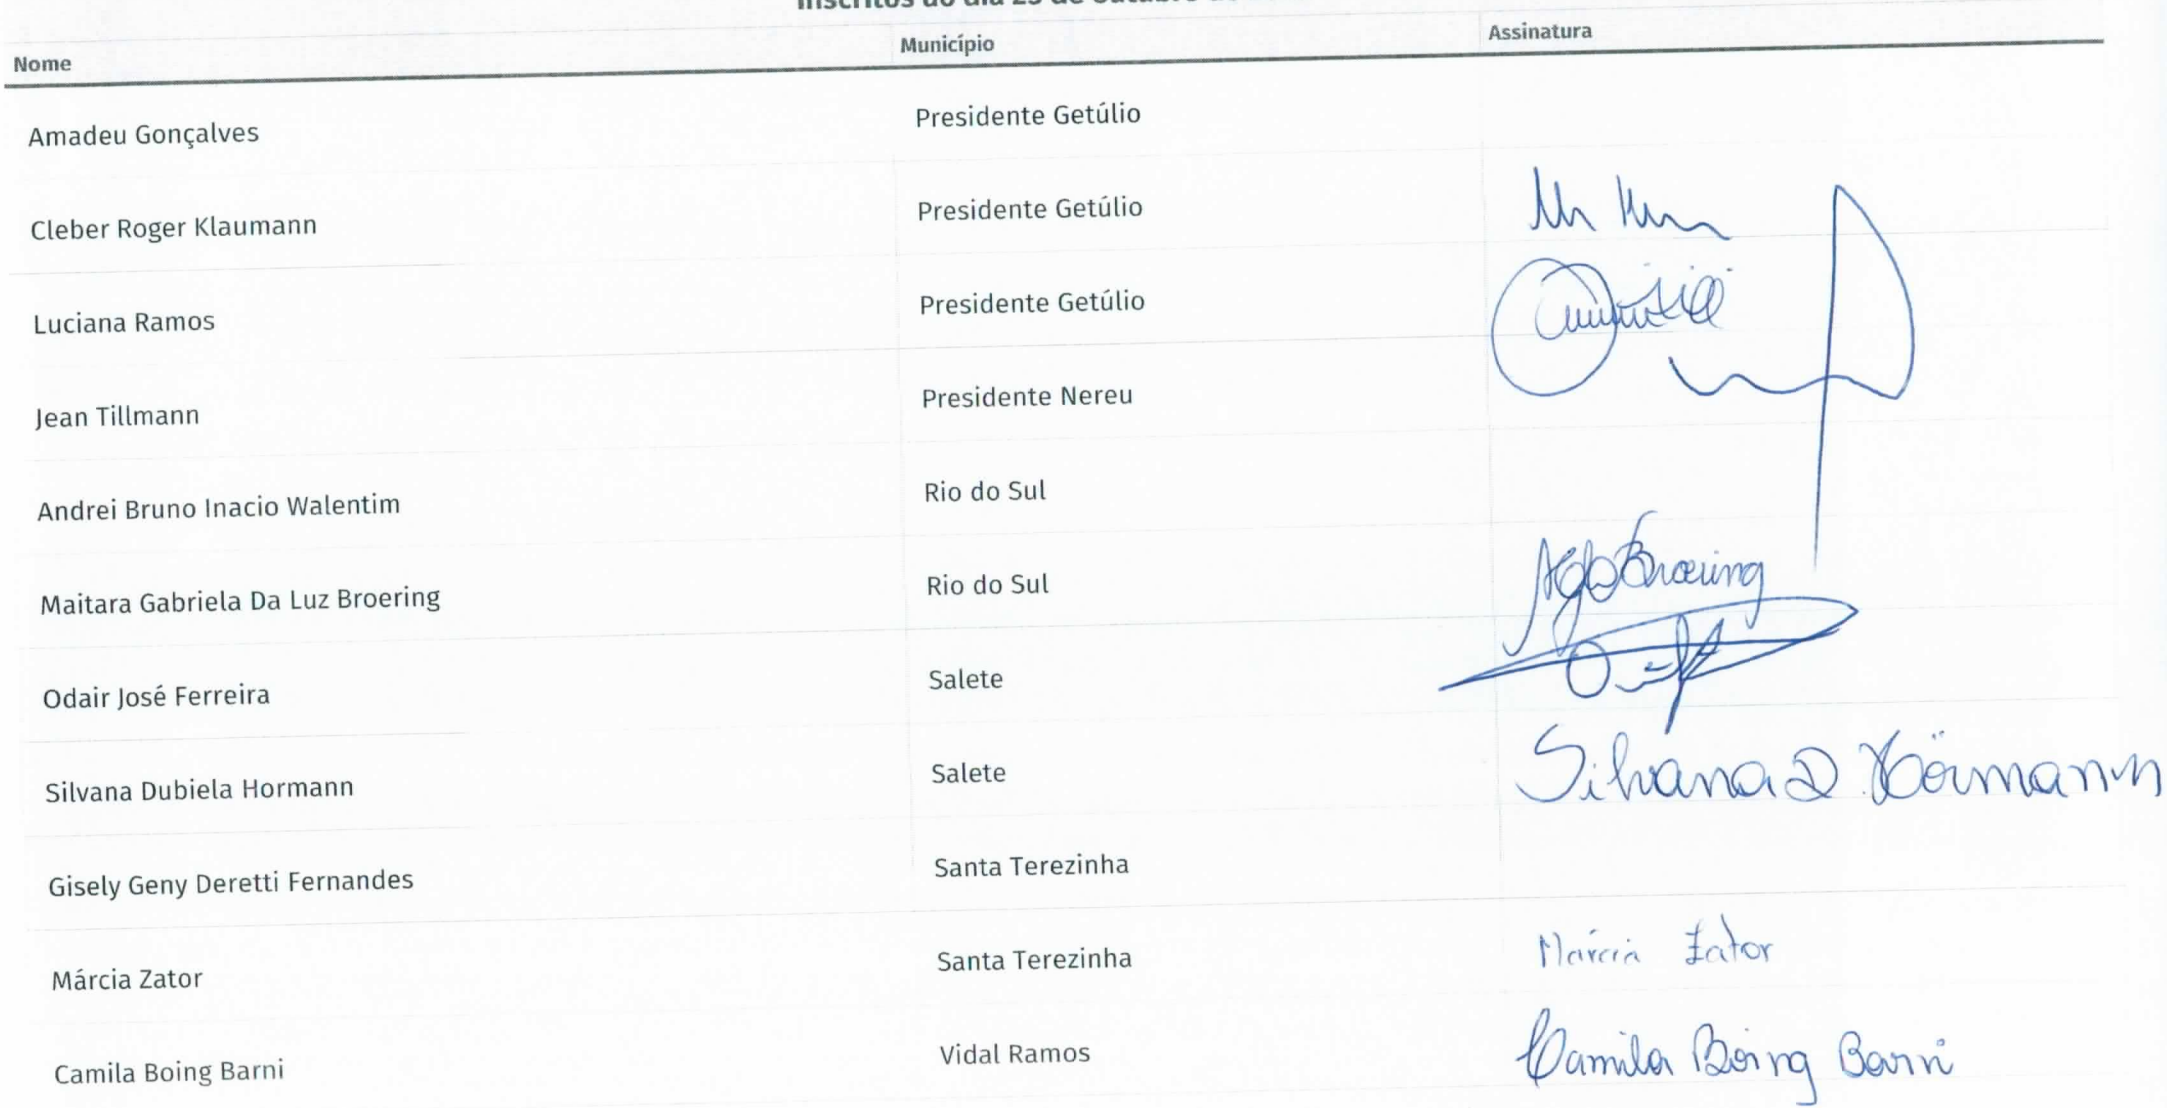 Nome Município Assinatura
Amadeu Gonçalves Presidente Getúlio
Cleber Roger Klaumann Presidente Getúlio
Luciana Ramos Presidente Getúlio
Jean Tillmann Presidente Nereu
Andrei Bruno Inacio Walentim Rio do Sul
Maitara Gabriela Da Luz Broering Rio do Sul Broering
Odair José Ferreira Salete
Silvana Dubiela Hormann Salete Silvana D. Hörmann
Gisely Geny Deretti Fernandes Santa Terezinha
Márcia Zator Santa Terezinha Márcia Zator
Camila Boing Barni Vidal Ramos Camila Boing Barni